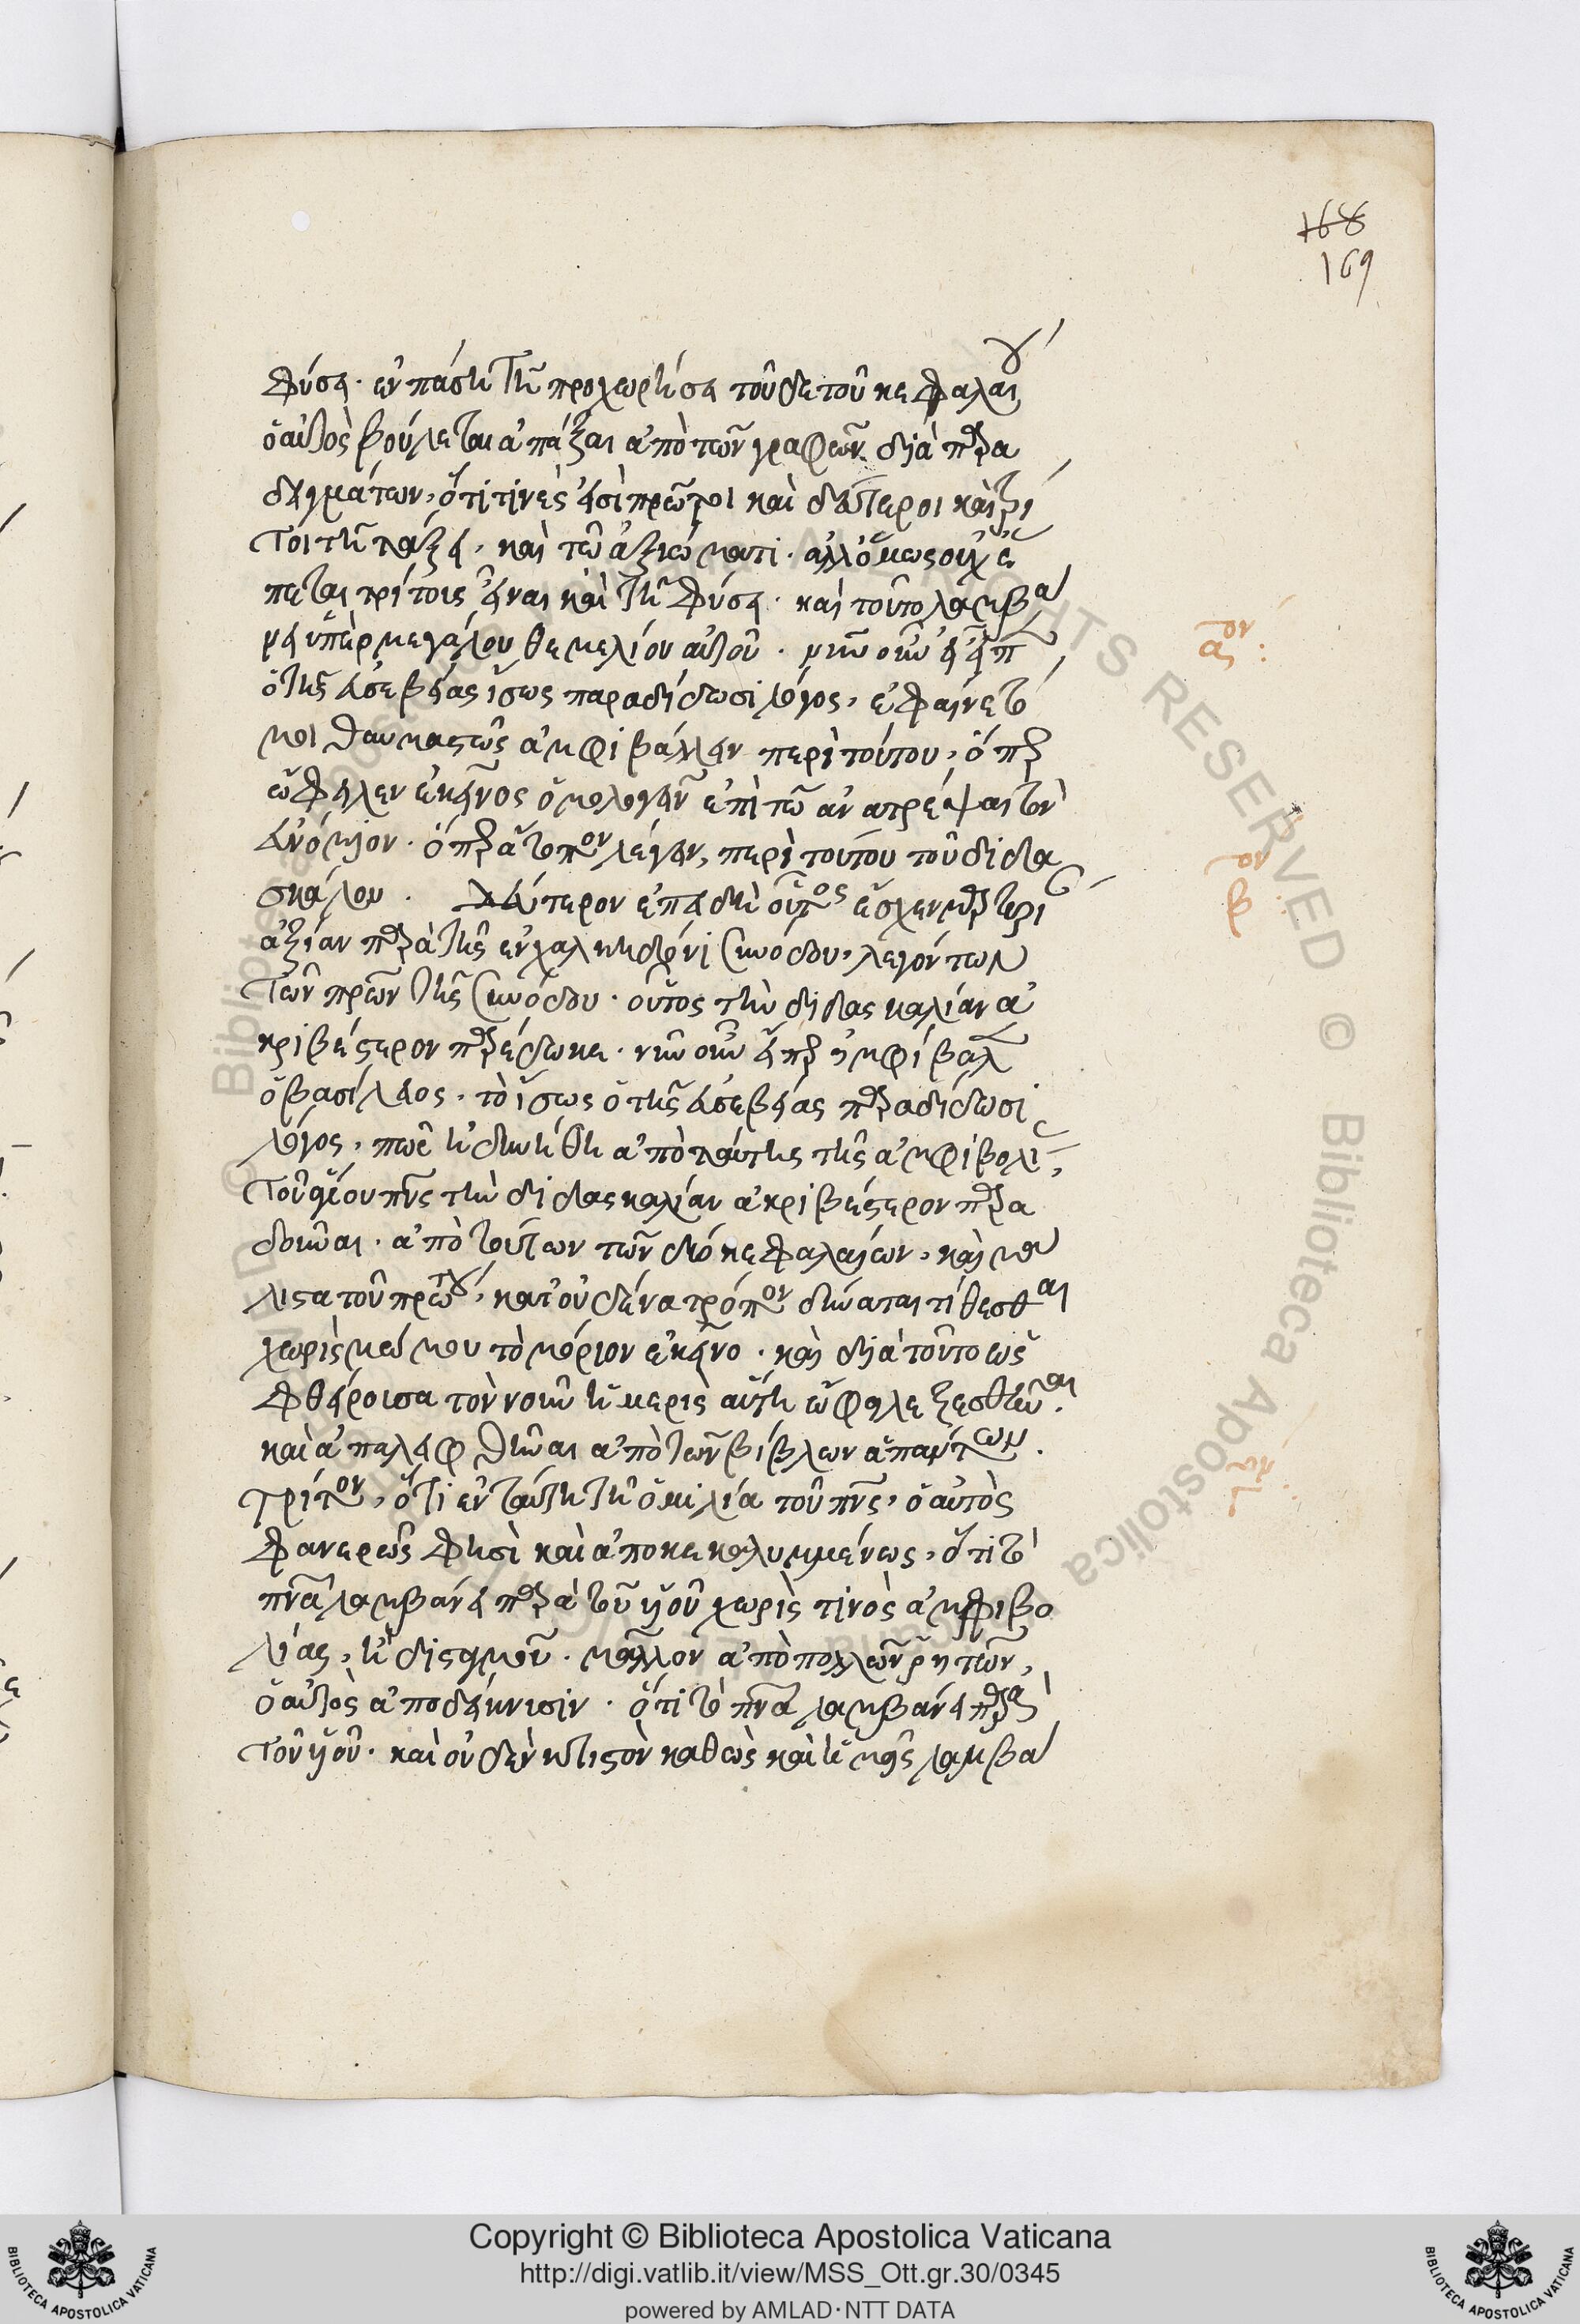 168
169
φύσει. ἐν πάσῃ τῇ προχωρήσει τοῦδε τοῦ κεφαλαίου
ὁ αὐτὸς βούλεται ἀπάξαι ἀπὸ τῶν γραφῶν διὰ παρα
δειγμάτων, ὅτι τινές εἰσι πρῶτοι καὶ δεύτεροι καὶ τρί
τοι τῇ τάξει, καὶ τῷ ἀξιώματι. ἀλλ' ὅμως οὐχ ἕ
πεται τρίτοις εἶναι καὶ τῇ φύσει. καὶ τοῦτο λαμβά
νει ὑπὲρ μεγάλου θεμελίου αὐτοῦ. νῦν οὖν εἰ εἶπεν
ὁ τῆς εὐσεβείας ἴσως παραδίδωσι λόγος, ἐφαίνετό
μοι θαυμαστῶς ἀμφιβάλλειν περὶ τούτου, ὅπερ
ὤφειλεν ἐκεῖνος ὁμολογεῖν ἐπὶ τῷ ἀνατρέψαι τὸν
εὐνόμιον. ὅπερ ἄτοπον λέγειν, περὶ τούτου τοῦ διδα
σκάλου. δεύτερον ἐπειδὴ οὗτος ἔσχεν μαρτυρί
ἀξίαν παρὰ τῆς ἐν χαλκηδόνι συνόδου, λεγόντων
τῶν πρῶν τῆς συνόδου. οὗτος τὴν διδασκαλίαν ἀ
κριβέστερον παρέδωκε. νῦν οὖν εἴπερ ἀμφίβαλλεν
ὁ βασίλειος, τὸ ἴσως ὁ τῆς εὐσεβείας παραδίδωσι
λόγος, πῶς ἠδυνήθη ἀπὸ ταύτης τῆς ἀμφιβολίας
τοῦ ἁγίου πνς τὴν διδασκαλίαν ἀκριβέστερον παρα
δοῦναι. ἀπὸ τούτων τῶν δύο κεφαλαίων, καὶ μά
λιστα τοῦ πρώτου, κατ' οὐδένα τρόπον δύναται τίθεσθαι
χωρὶς μώμου τὸ μόριον ἐκεῖνο. καὶ διὰ τοῦτο ὡς
φθείρουσα τὸν νοῦν ἡ μερὶς αὕτη ὤφειλε ξεσθῆναι.
καὶ ἀπαλειφθῆναι ἀπὸ τῶν βίβλων ἁπάντων.
τρίτον, ὅτι ἐν ταύτῃ τῇ ὁμιλίᾳ τοῦ πνς, ὁ αὐτὸς
φανερῶς φησὶ καὶ ἀποκεκαλυμμένως, ὅτι τὸ
πνα λαμβάνει παρὰ τοῦ υἱοῦ χωρὶς τινὸς ἀμφιβο
λίας, ἢ δισταγμοῦ. μᾶλλον ἀπὸ πολλῶν ῥητῶν,
ὁ αὐτὸς ἀποδείκνυσιν. ὅτι τὸ πνα λαμβάνει παρὰ
τοῦ υἱοῦ. καὶ οὐδὲν κτιστὸν καθὼς καὶ ἡμεῖς λαμβά
Copyright © Biblioteca Apostolica Vaticana
http://digi.vatlib.it/view/MSS_Ott.gr.30/0345
powered by AMLAD·NTT DATA
BIBLIOTECA APOSTOLICA VATICANA
BIBLIOTECA APOSTOLICA VATICANA